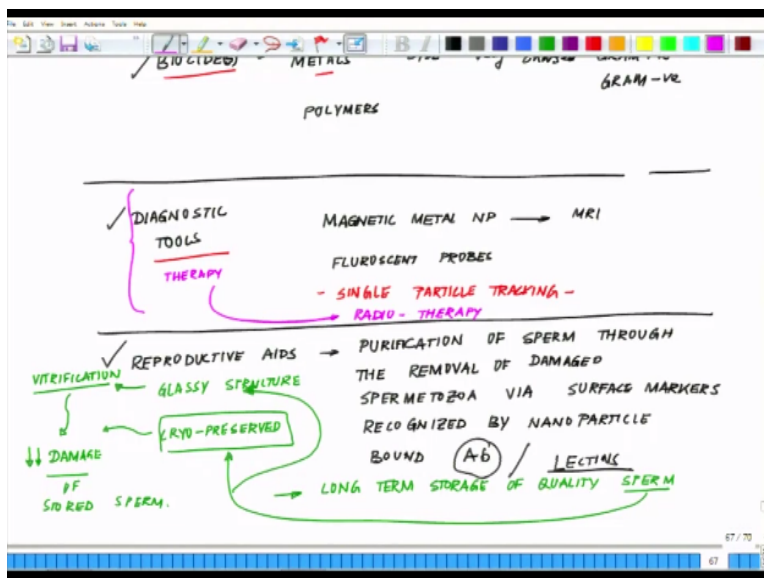 File Edit View Insert Actions Tools Help
B I
✓ BIOCIDES METALS
GRAM-ve
POLYMERS
✓ DIAGNOSTIC TOOLS
THERAPY
MAGNETIC METAL NP → MRI
FLUROSCENT PROBES
- SINGLE PARTICLE TRACKING -
RADIO - THERAPY
✓ REPRODUCTIVE AIDS → PURIFICATION OF SPERM THROUGH
THE REMOVAL OF DAMAGED
SPERMETOZOA VIA SURFACE MARKERS
RECOGNIZED BY NANOPARTICLE
BOUND Ab / LECTINS
→ LONG TERM STORAGE OF QUALITY SPERM
VITRIFICATION ← GLASSY STRUCTURE
CRYO-PRESERVED
↓↓ DAMAGE
OF
STORED SPERM.
67 / 70
67